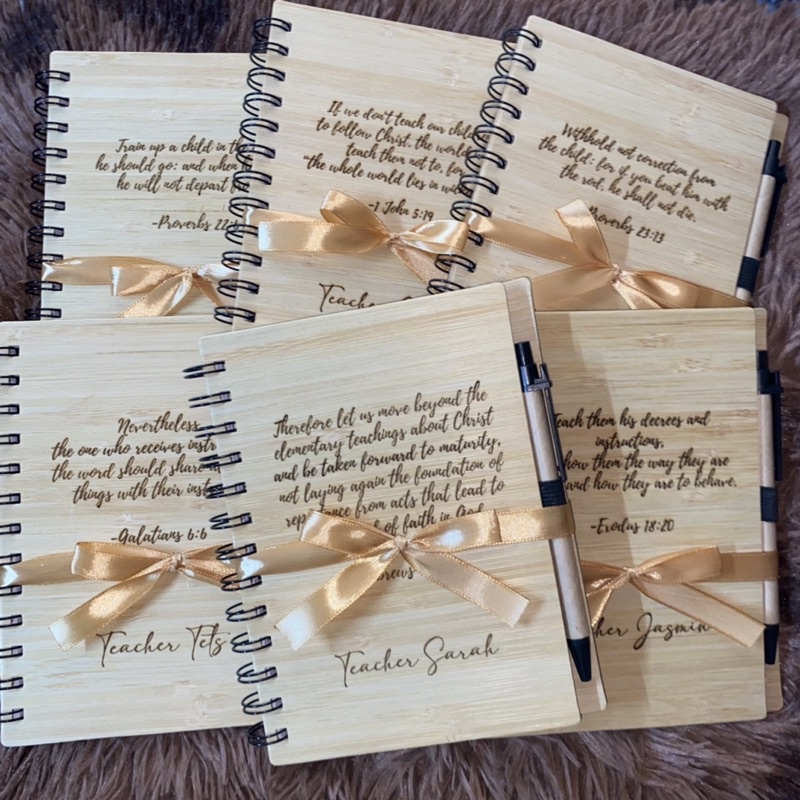 Train up a child in
he should go: and when
he will not depart
-Proverbs 22:
If we don't teach our
to follow Christ, the world
teach them not to, for
"the whole world lies in
-1 John 5:19
Teacher
Withhold not correction from
the child: for if you beat him with
the rod, he shall not die.
Proverbs 23:13
Nevertheless
the one who receives
the word should share
things with their
-Galatians 6:6
Teacher
Therefore let us move beyond the
elementary teachings about Christ
and be taken forward to maturity,
not laying again the foundation of
from acts that lead to
of faith in God
Teacher Sarah
Teach them his decrees and
instructions,
them the way they are
and how they are to behave.
-Exodus 18:20
Jasmin